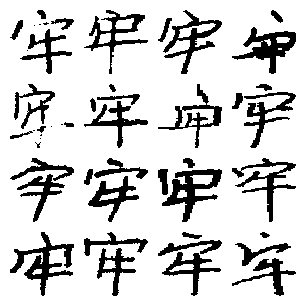 牢牢牢牢
牢牢牢牢
牢牢牢牢
牢牢牢牢